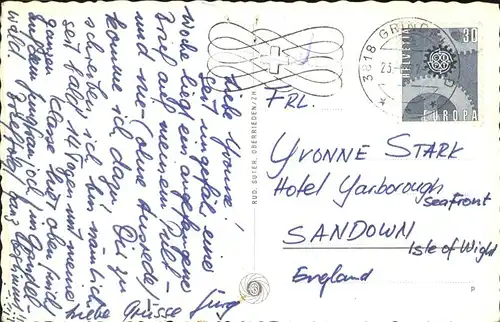 Liebe Yvonne!
Seit ungefähr einer
Woche liegt ein angefangener
Brief auf meinem Pult
und nie (ohne Ausrede)
komme ich dazu, Dir zu
schreiben. Ich bin nämlich
seit fast 14 Tagen mit meiner
ganzen Klasse dort oben
auf dem Jungfraujoch in
Liebe Grüsse Jürg
RUD. SUTER, OBERRIEDEN/ZH
3818 GRIND
23.
HELVETIA
30
EUROPA
FRL.
YVONNE STARK
Hotel Yarborough
Seafront
SANDOWN
Isle of Wight
England
P